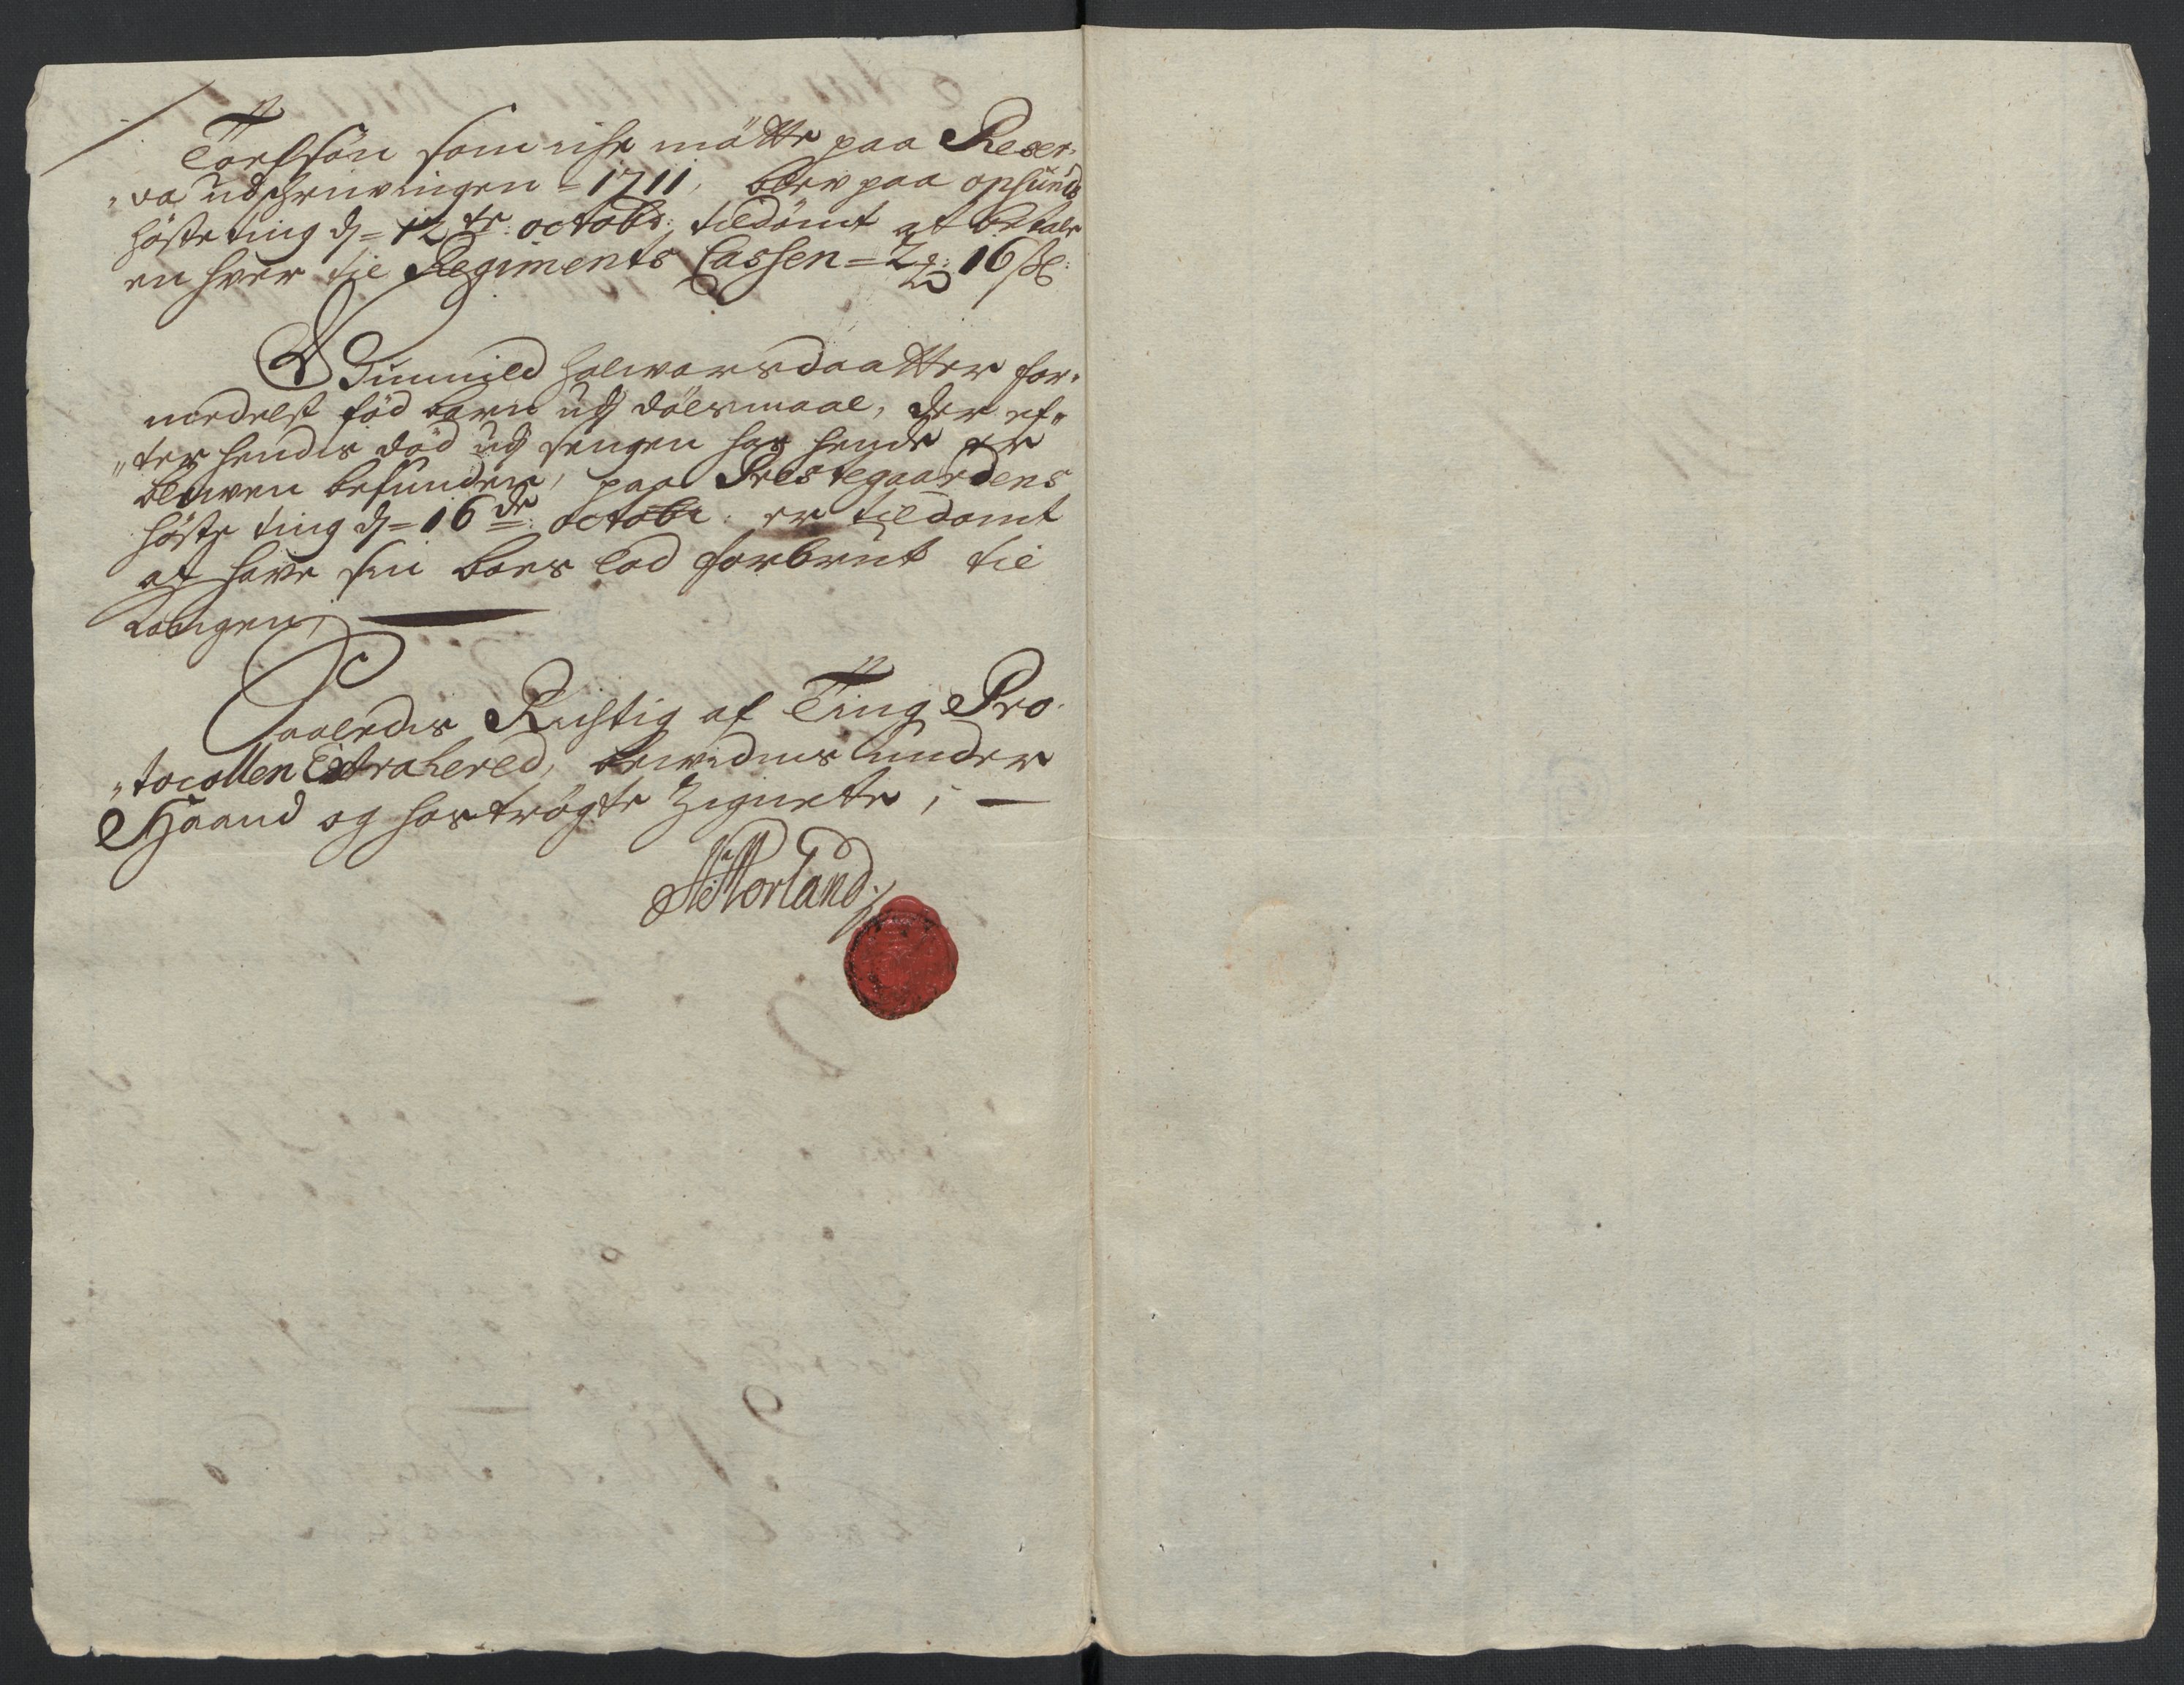 Torfsön som iche mötte paa Reser¬
"va udschrivingen = 1711, blev paa opsünds
höste ting d = 12te octobr: tildömt at betale
en hver til Regiments Cassen = 2 16 sk:
Gunnild halvorsdaatter for¬
medelst föd barn udj dölsmaal, der ef¬
"ter hendis död udj sengen hos hende er
bleven befunden, paa Prestegaardens
höste ting d = 16de octobr. er tildömt
at have sin boes lod forbrut til
Kongen,
Saaledis Rigtig af Ting Pro¬
"tocollen Extrahered, bevidnis under
Haand og hoströgte Zignette, ;
Morland